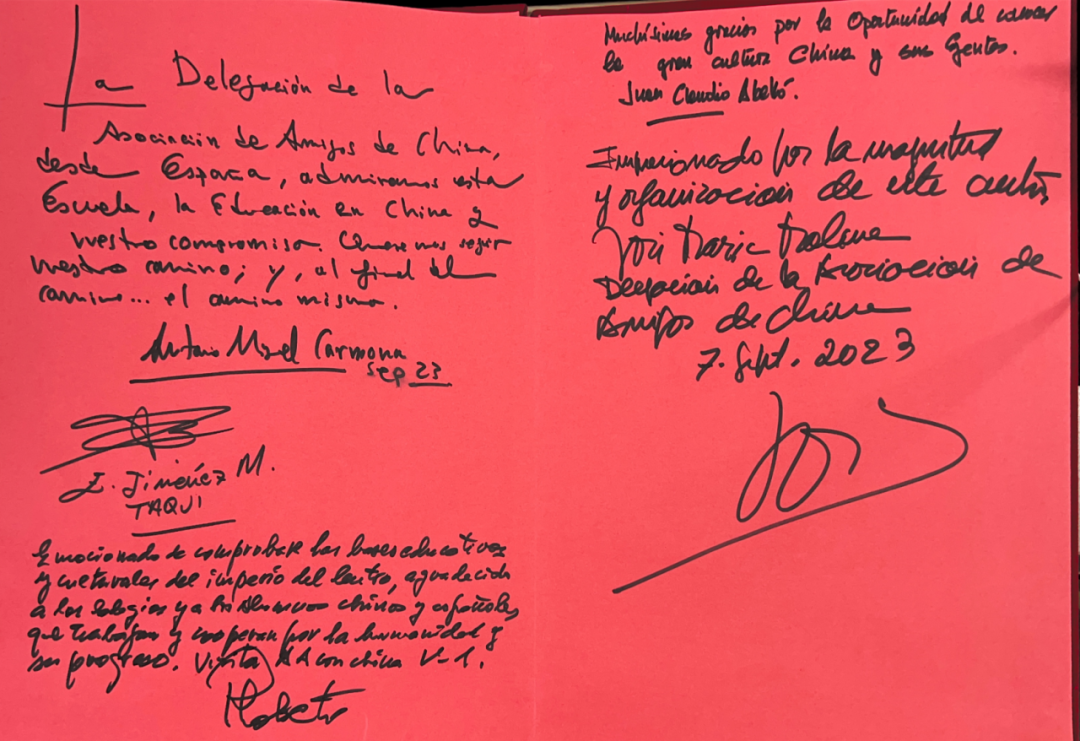 La Delegación de la
Asociación de Amigos de China,
desde España, admiramos esta
Escuela, la Educación en China y
vuestro compromiso. Queremos seguir
vuestro camino; y, al final del
camino... el camino mismo.
Antonio Miguel Carmona
Sep 23
Jiménez M.
TAQUI
Emocionado de comprobar las bases educativas
y culturales del imperio del Centro, agradecido
a los colegios y a los alumnos chinos y españoles,
que trabajan y cooperan por la humanidad y
su progreso. Visita con china V-1.
Muchísimas gracias por la Oportunidad de conocer
la gran cultura China y sus Gentes.
Juan Claudio
Impresionado por la magnitud
y organizacion de este centro
Jose Maria
Delegacion de la Asociacion de
Amigos de China
7. Sept. 2023